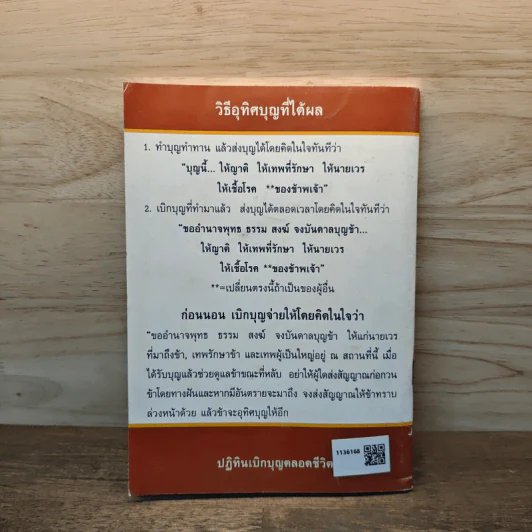 วิธีอุทิศบุญที่ได้ผล
1. ทำบุญทำทาน แล้วส่งบุญได้โดยคิดในใจทันทีว่า
"บุญนี้... ให้ญาติ ให้เทพที่รักษา ให้นายเวร
ให้เชื้อโรค **ของข้าพเจ้า"
2. เบิกบุญที่ทำมาแล้ว ส่งบุญได้ตลอดเวลาโดยคิดในใจทันทีว่า
"ขออำนาจพุทธ ธรรม สงฆ์ จงบันดาลบุญข้า...
ให้ญาติ ให้เทพที่รักษา ให้นายเวร
ให้เชื้อโรค **ของข้าพเจ้า"
**=เปลี่ยนตรงนี้ถ้าเป็นของผู้อื่น
ก่อนนอน เบิกบุญจ่ายให้โดยคิดในใจว่า
"ขออำนาจพุทธ ธรรม สงฆ์ จงบันดาลบุญข้า ให้แก่นายเวร
ที่มาถึงข้า, เทพรักษาข้า และเทพผู้เป็นใหญ่อยู่ ณ สถานที่นี้ เมื่อ
ได้รับบุญแล้วช่วยดูแลข้าขณะที่หลับ อย่าให้ผู้ใดส่งสัญญาณก่อกวน
ข้าโดยทางฝันและหากมีอันตรายจะมาถึง จงส่งสัญญาณให้ข้าทราบ
ล่วงหน้าด้วย แล้วข้าจะอุทิศบุญให้อีก
1136168
ปฏิทินเบิกบุญตลอดชีวิต